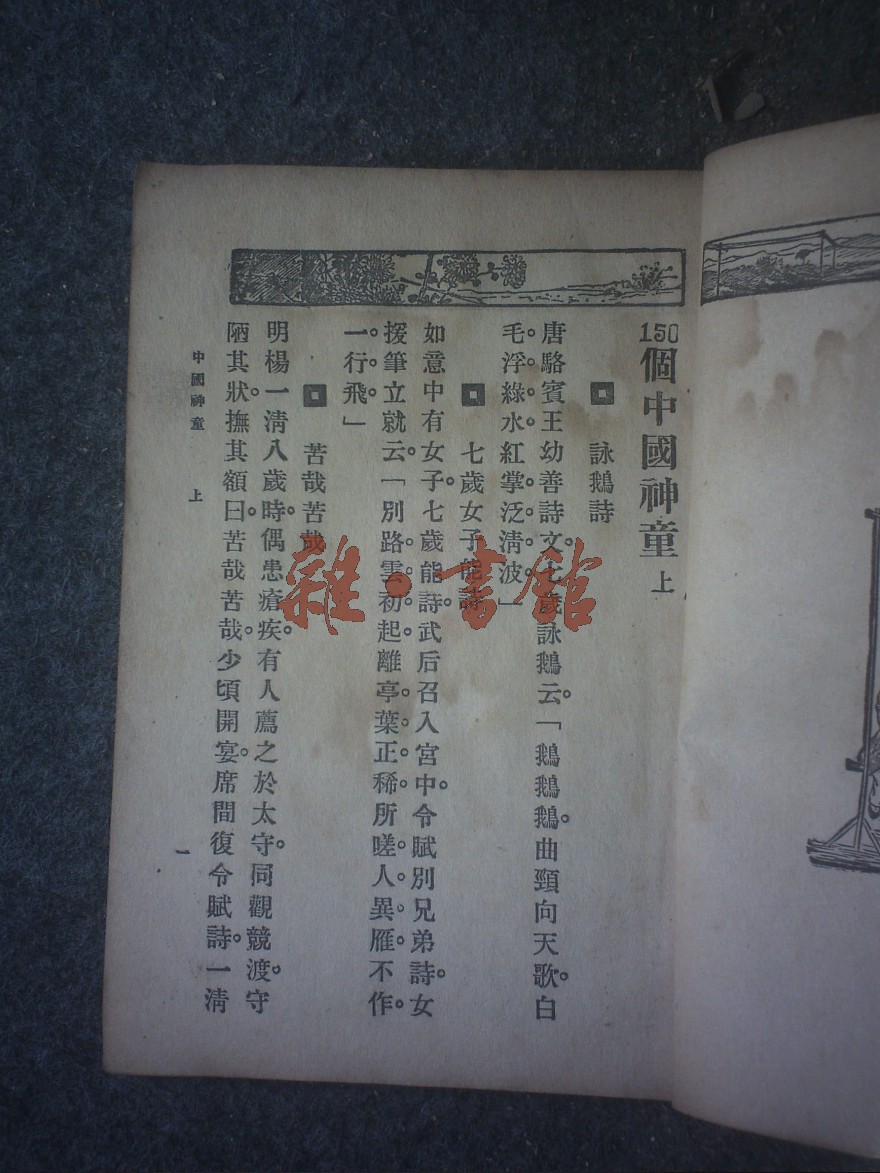 150個中國神童 上
詠鵝詩
唐駱賓王幼善詩文。七歲詠鵝云。「鵝鵝鵝。曲頸向天歌。白
毛浮綠水。紅掌泛清波。」
七歲女子能詩
如意中有女子。七歲能詩。武后召入宮中。令賦別兄弟詩。女
援筆立就云。「別路雲初起。離亭葉正稀。所嗟人異雁。不作
一行飛。」
苦哉苦哉
明楊一清八歲時。偶患瘡疾。有人薦之於太守。同觀競渡。守
陋其狀。撫其額曰。苦哉苦哉。少頃開宴。席間復令賦詩。一清
中國神童 上
一
雜·書館